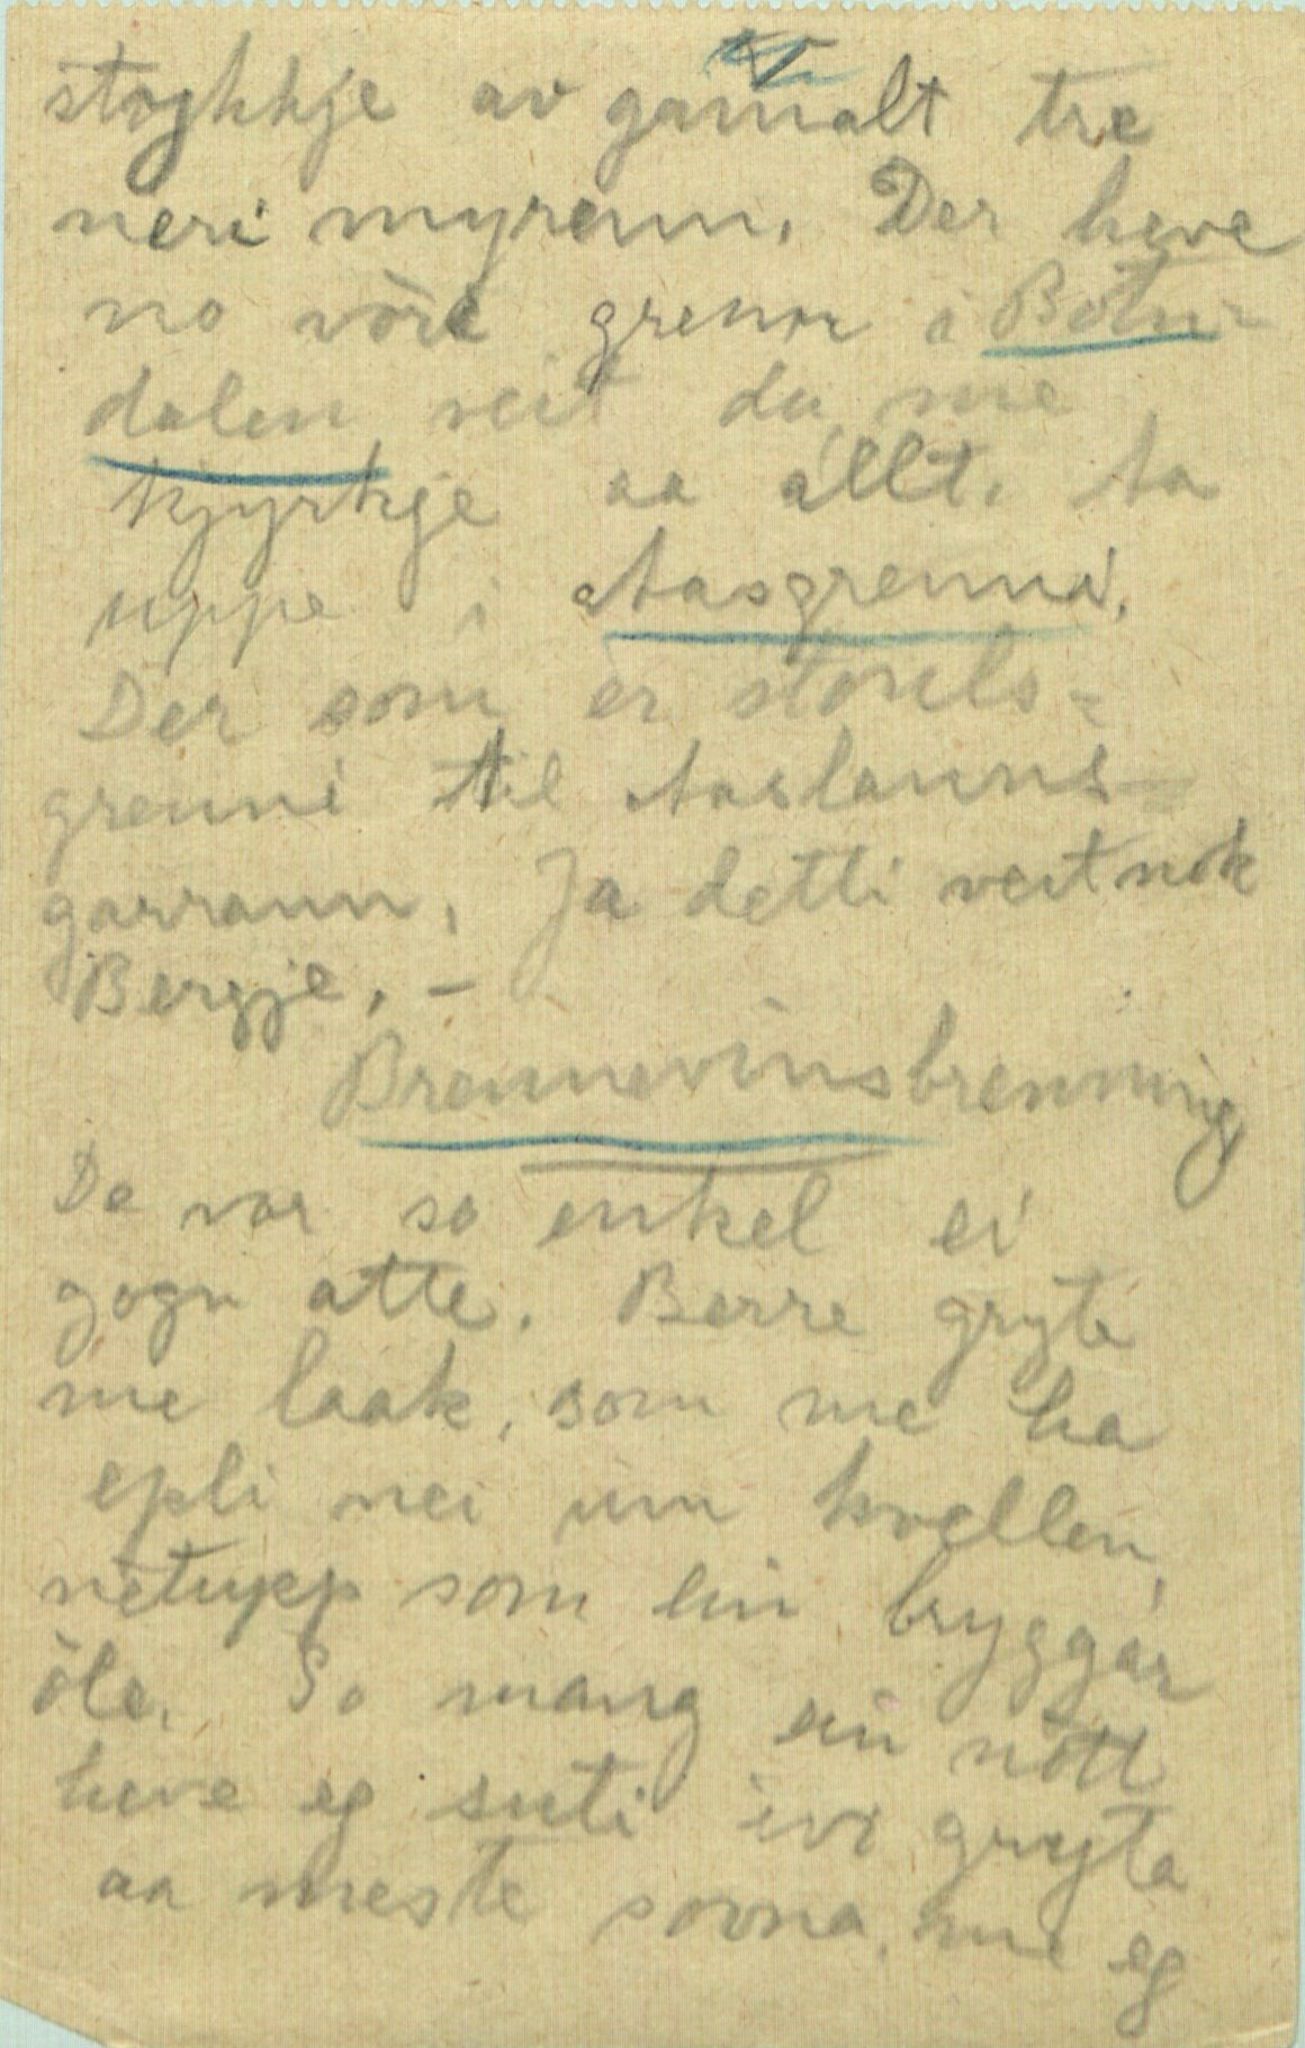 stoykkje av gamalt tre
neri myrenn. Der heve
no vòre grenn i Bòtn-
dalen seit da me
kjyrkje aa allt. Aa
uppe i Aasgrenni.
Der som er stouls-
grenni til Aaslanns-
garrann. Ja detti veit nok
Bergje. –
Brennevinsbrenning
De var so enkel ei
gogn atte. Berre gryte
me laak, som me ha
epli nei um kvellen,
netupp som ein bryggar
òle. So mang ein nòtt
heve eg seti ivi gryta
aa meste sovna, me eg